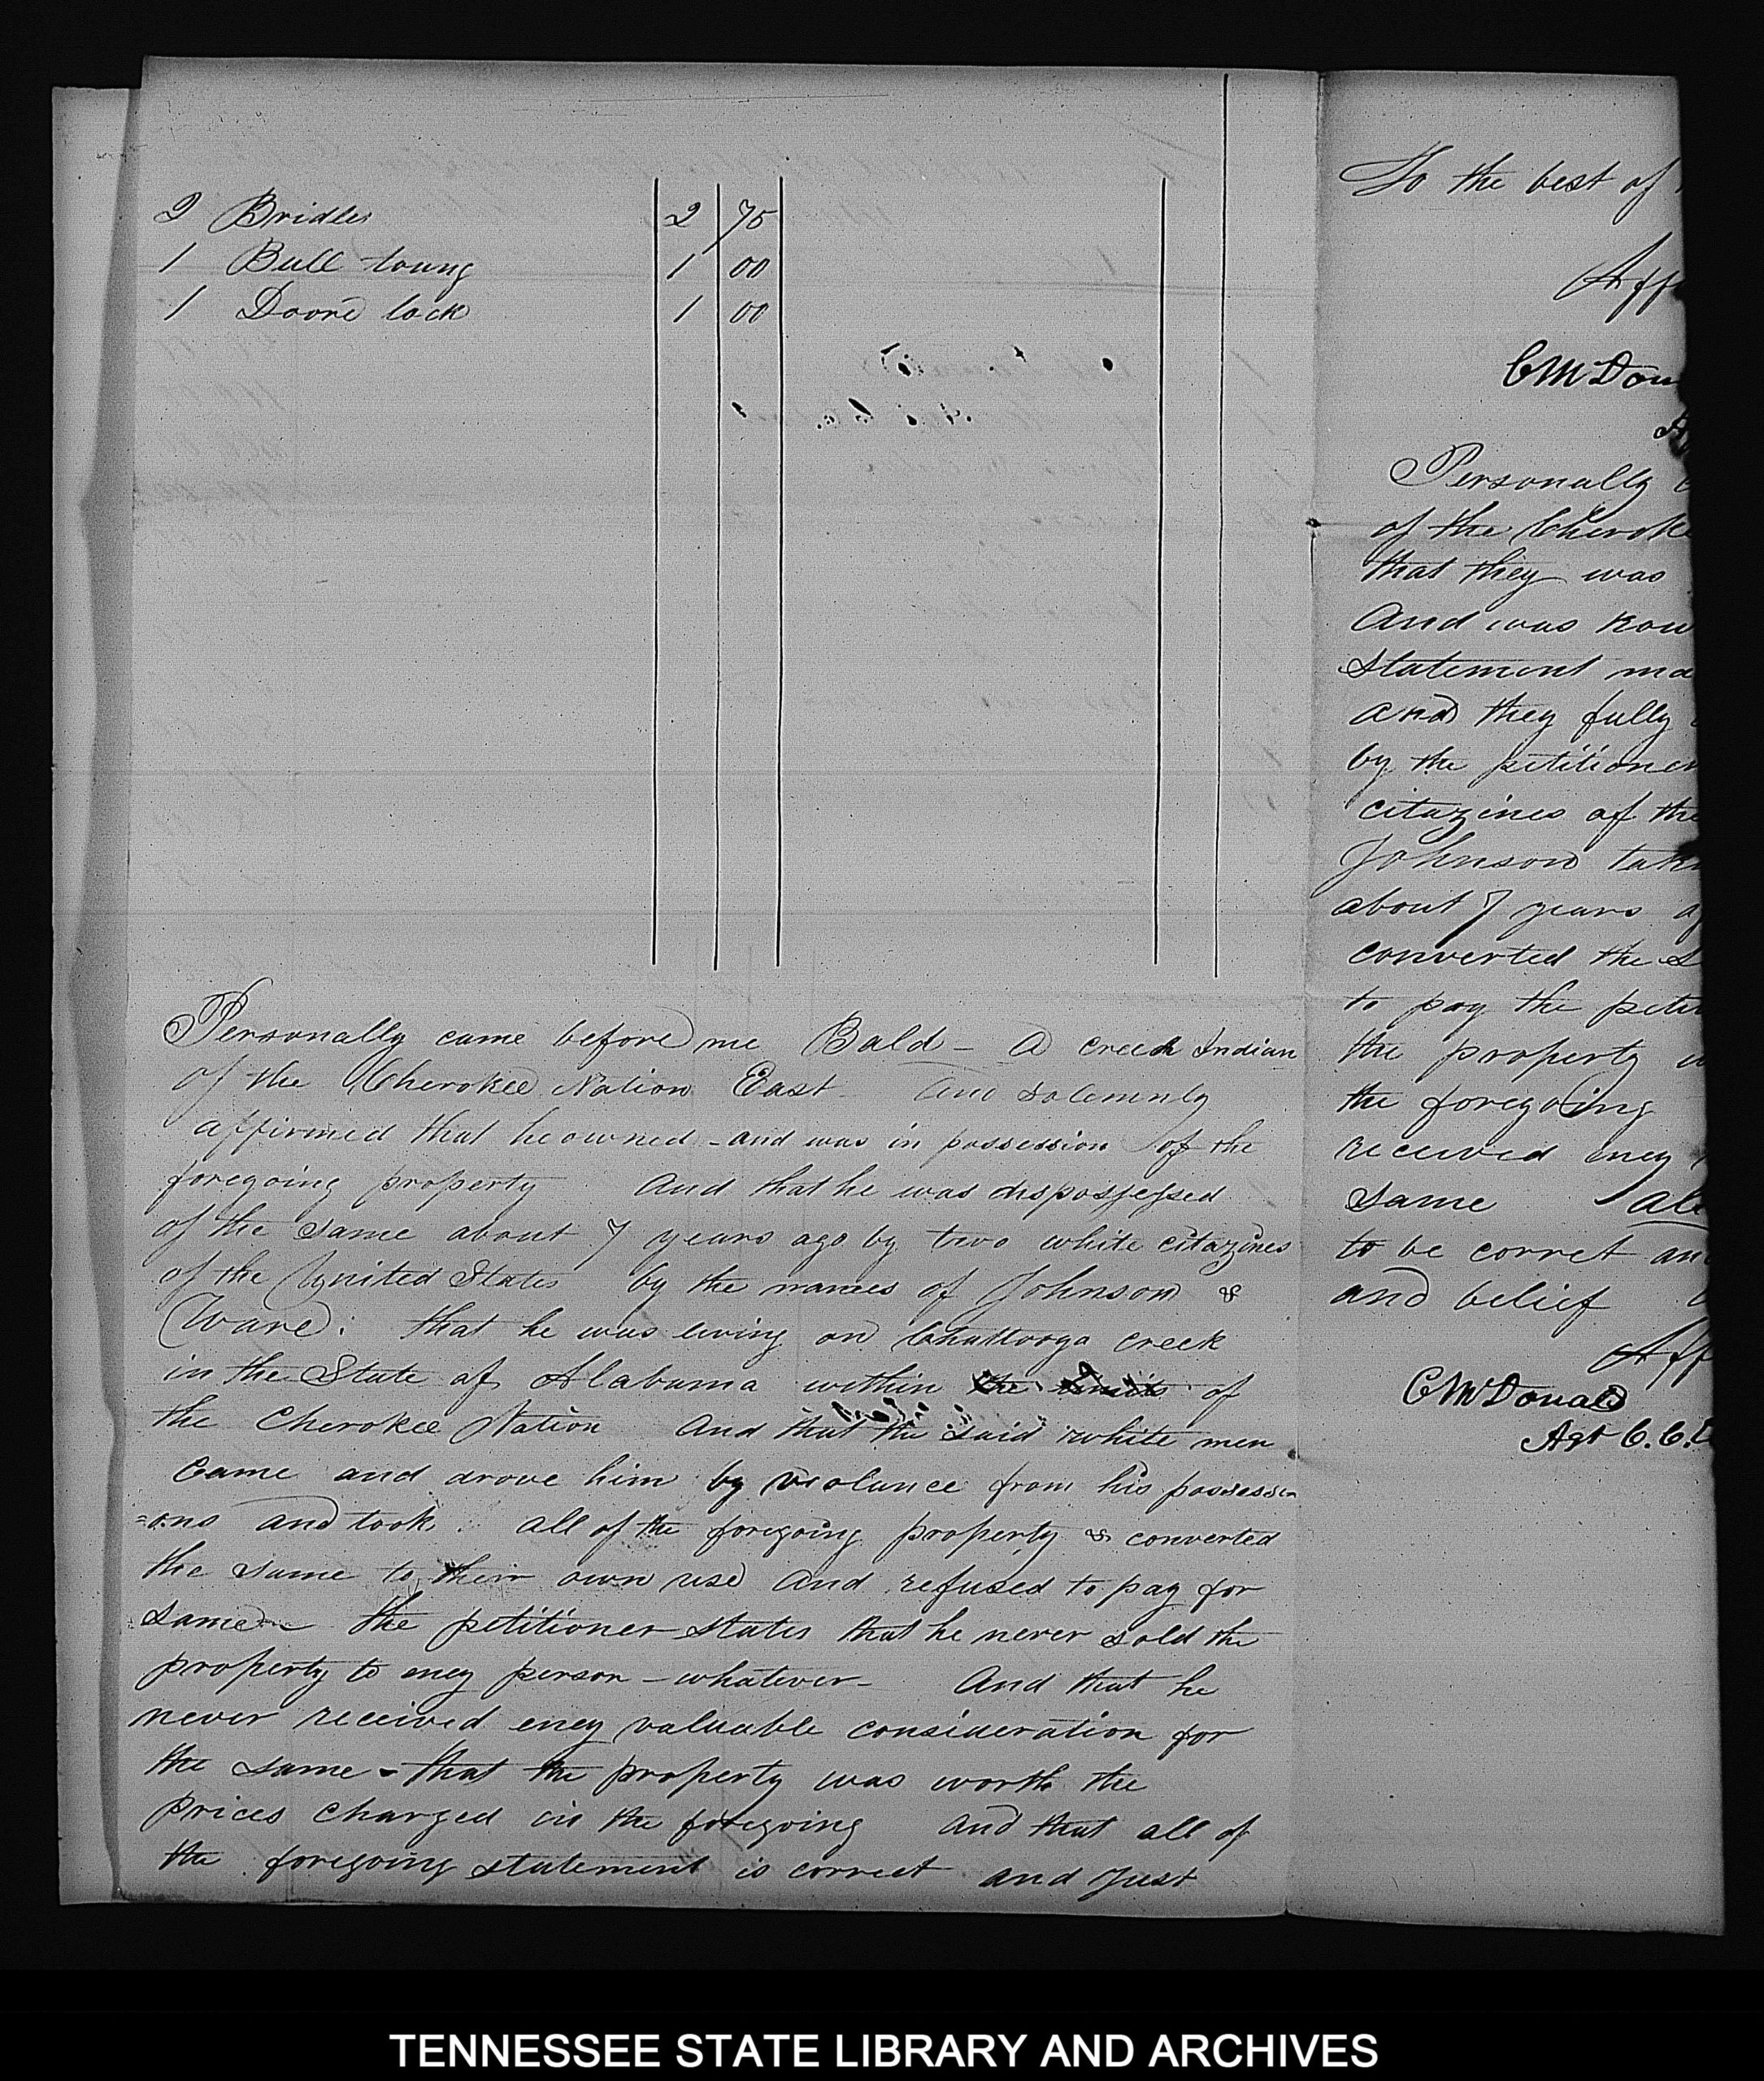 2 Bridles 2 75
1 Bull toung 1 00
1 Doore lock 1 00
Personally came before me Bald - A creek Indian
of the Cherokee Nation East and solemnly
affirmed that he owned - and was in possession of the
foregoing property And that he was dispossessed
of the same about 7 years ago by two white citazines
of the United States by the names of Johnson &
Ware: that he was living on Chattooga creek
in the State of Alabama within the limits of
the Cherokee Nation And that the said white men
Came and drove him by violance from his possessi
=ons and took all of the foregoing property & converted
the same to their own use And refused to pay for
same - the petitioner states that he never sold the
property to eney person - whatever - And that he
never received eney valuable consideration for
the same - that the property was worth the
prices charged in the foregoing and that all of
the foregoing statement is correct and just
To the best of
Aff
C McDon
Personally
of the Cheroke
that they was
And was know
statement ma
and they fully
by the petitioner
citazines of the
Johnson take
about 7 years a
converted the s
to pay the peti
the property
the foregoing
received eney
same all
to be corret an
and belief
Aff
C McDonald
Agt C. C.
TENNESSEE STATE LIBRARY AND ARCHIVES